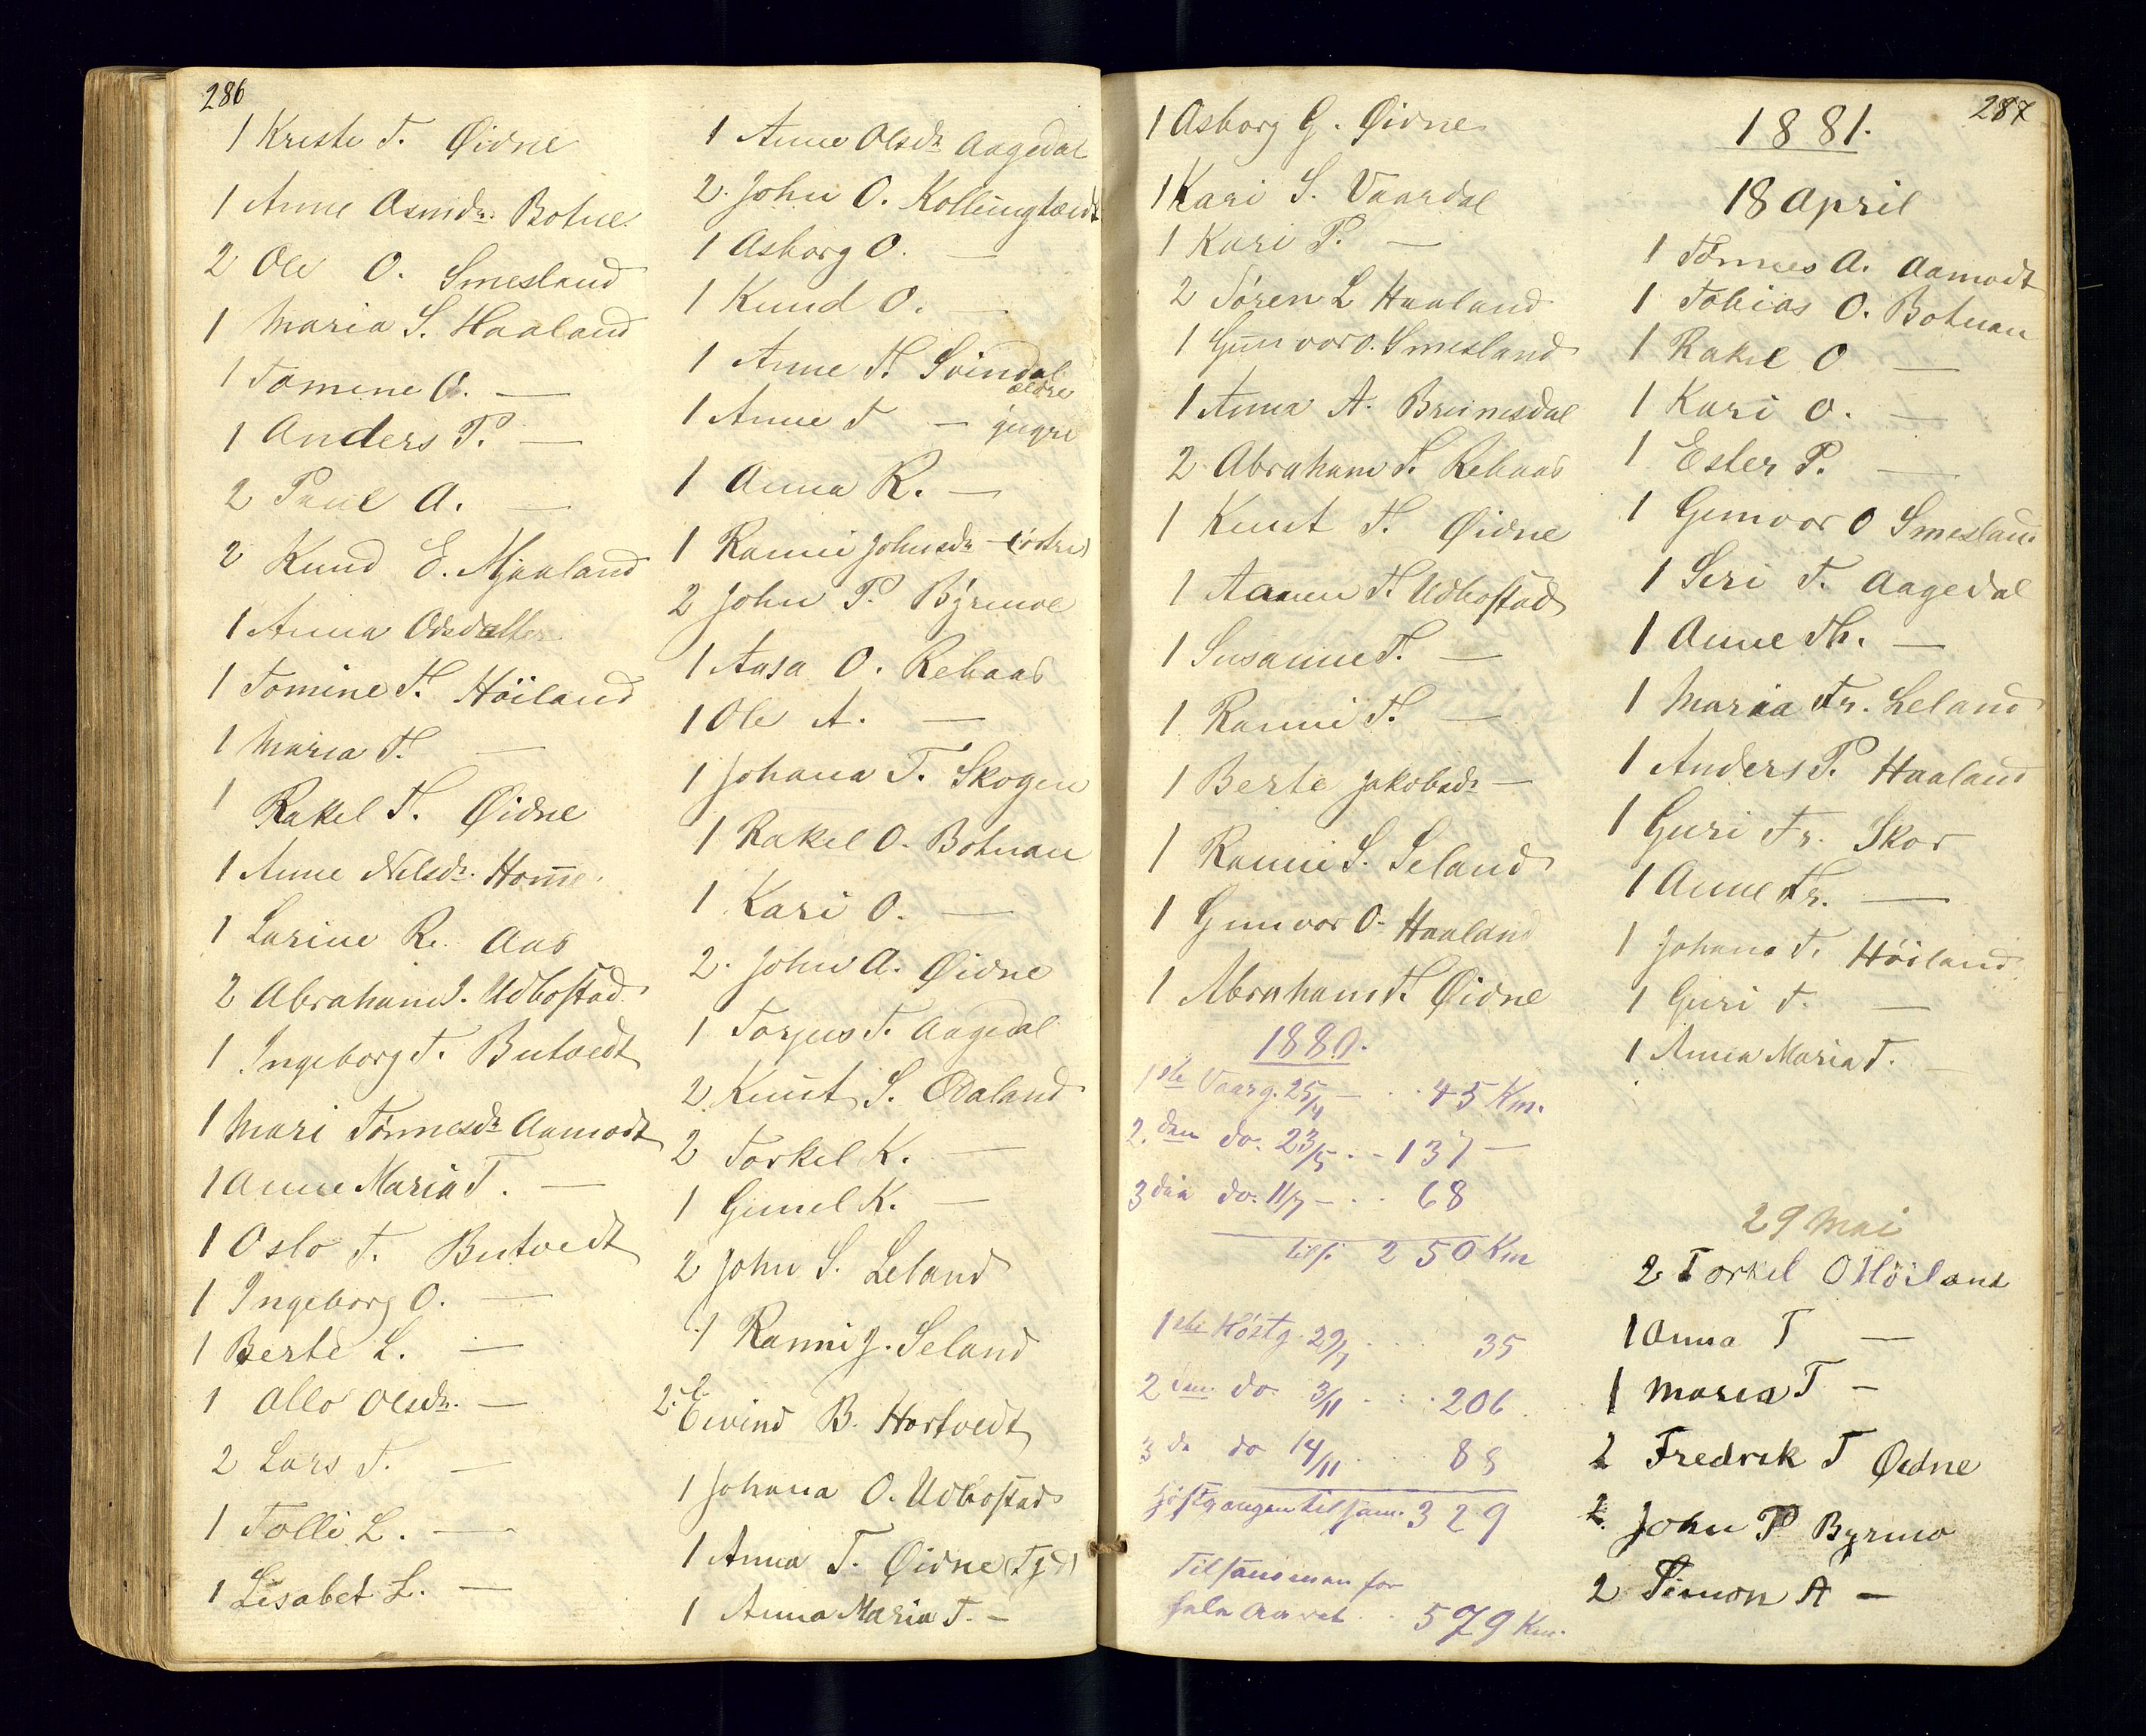 286
1 Kriste T. Øidne
1 Anne Asmdr. Botne
2 Ole O. Smesland
1 Maria S. Haaland
1 Tomine O. —
1 Anders P. —
2 Paul A. —
2 Knud E. Mjaaland
1 Anna Odsdatter
1 Tomine T. Höiland
1 Maria T. —
1 Rakel T. Øidne
1 Anne Nilsdr. Homme
1 Larine R. Aas
2 Abraham J. Udbostad
1 Ingeborg T. Butvedt
1 Mari Tönnesdr Aamodt
1 Anne Maria T. —
1 Oslo T. Butvedt
1 Ingeborg O. —
1 Berte L. —
1 Ollo Olsdr. —
2 Lars T. —
1 Tolli L. —
1 Lisabet L. —
1 Anne Olsdr Aagedal
2. John O. Kollungtvedt
1 Asborg O. —
1 Knud O. —
1 Anne T. Svindal
ældre
1 Anne T — yngre
1 Anna R. —
1 Ranni Johnsdr — (östre)
2 John P. Byrmoe
1 Aasa O. Rebaas
1 Ole A. —
1 Johana T. Skogen
1 Rakel O. Botnan
1 Kari O. —
2. John A. Øidne
1 Torjus T. Aagedal
2. Knut S. Odaland
2 Torkel K. —
1 Gunel K. —
2 John S. Leland
1 Ranni J. Seland
2. Eivind B. Hortvedt
1 Johana O. Udbostad
1 Anna T. Øidne (Tjd)
1 Anna Maria T. —
287
1 Asborg G. Øidne
1 Kari S. Vaardal
1 Kari P. —
2 Sören L Haaland
1 Gunvor O. Smesland
1 Anna A. Bruinesdal
2. Abraham T. Rebaas
1 Knut T. Øidne
1 Aanen T. Udbostad
1 Susanne T. —
1 Ranni T. —
1 Berte Jakobsdr —
1 Ranni S. Seland
1 Gunvor O. Haaland
1 Abraham T. Øidne
1880.
1ste Vaarg. 25/4 — . . 45 Km.
2. den do. 23/5 . - 137 —
3 die do. 11/7 — . . 68
tils. 250 Km
1ste Höstg. 29/9 . . . 35
2den do. 3/11 . : . 206
3de do 14/11 . . . 88
Höstgangen tilsam. 329
Tilsamman for
hele Aaret . . 579 Km.
1881.
18 April
1 Tönnes A. Aamodt
1 Tobias O. Botnan
1 Rakel O —
1 Kari O. —
1 Ester P. —
1 Gunvor O Smesland
1 Siri T. Aagedal
1 Anne Th. —
1 Maria Fr. Leland
1 Anders P. Haaland
1 Guri Fr. Skor
1 Anne Fr. —
1 Johana T. Höiland
1 Guri T. —
1 Anna Maria T. —
29 Mai
2 Torkel O Höiland
1 Anna T —
1 Maria T —
2 Fredrik T Øidne
2. John P Byrmo
2 Simon A —